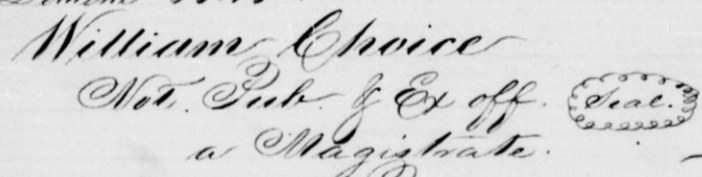 William Choice
Not. Pub. & Ex off. Seal.
a Magistrate.